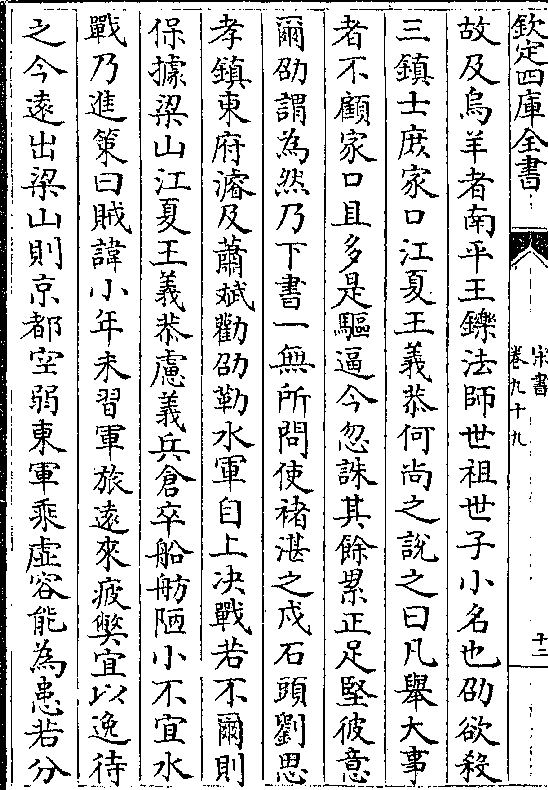 欽定四庫全書
宋書
卷九十九
十二
故及烏羊者南平王鑠法師世祖世子小名也劭欲殺
三鎮士庶家口江夏王義恭何尚之說之曰凡舉大事
者不顧家口且多是驅逼今忽誅其餘累正足堅彼意
爾劭謂為然乃下書一無所問使褚湛之戍石頭劉思
孝鎮東府濬及蕭斌勸劭勒水軍自上決戰若不爾則
保據梁山江夏王義恭慮義兵倉卒船舫陋小不宜水
戰乃進策曰賊諱小年未習軍旅遠來疲弊宜以逸待
之今遠出梁山則京都空弱東軍乘虛容能為患若分